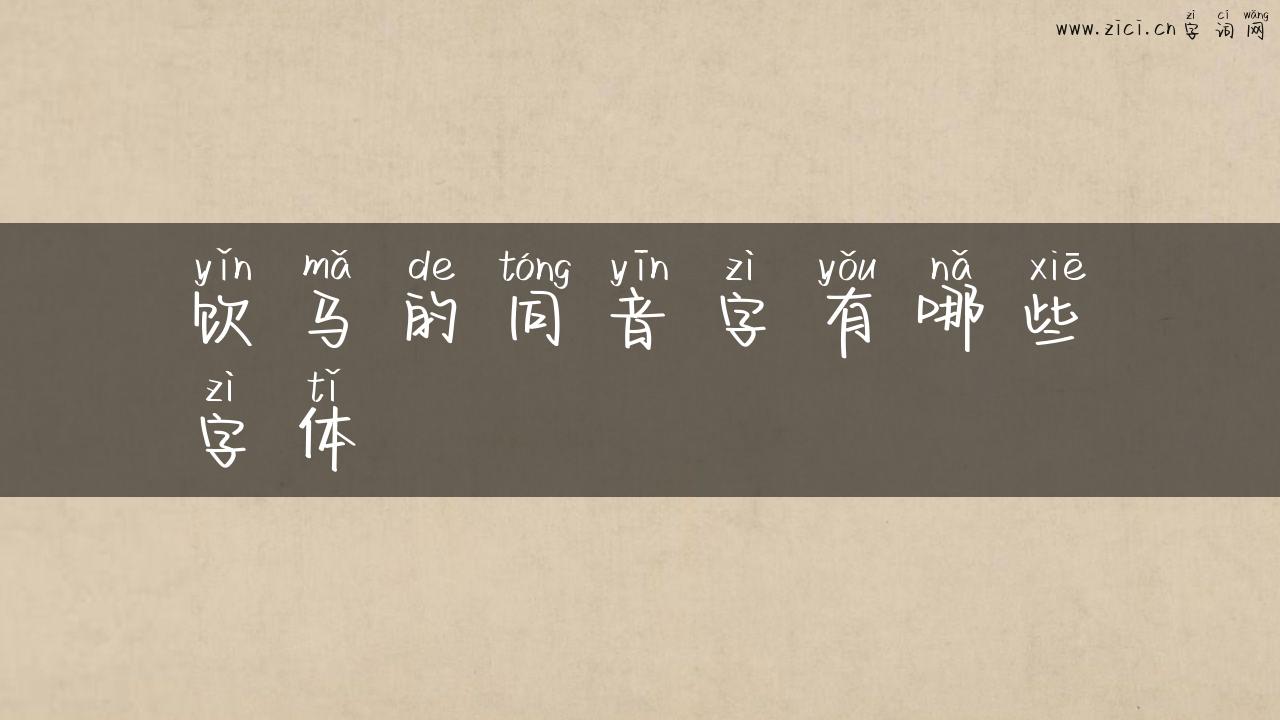 zì cí wǎng
www.zici.cn 字词网
yǐn mǎ de tóng yīn zì yǒu nǎ xiē
饮马的同音字有哪些
zì tǐ
字体